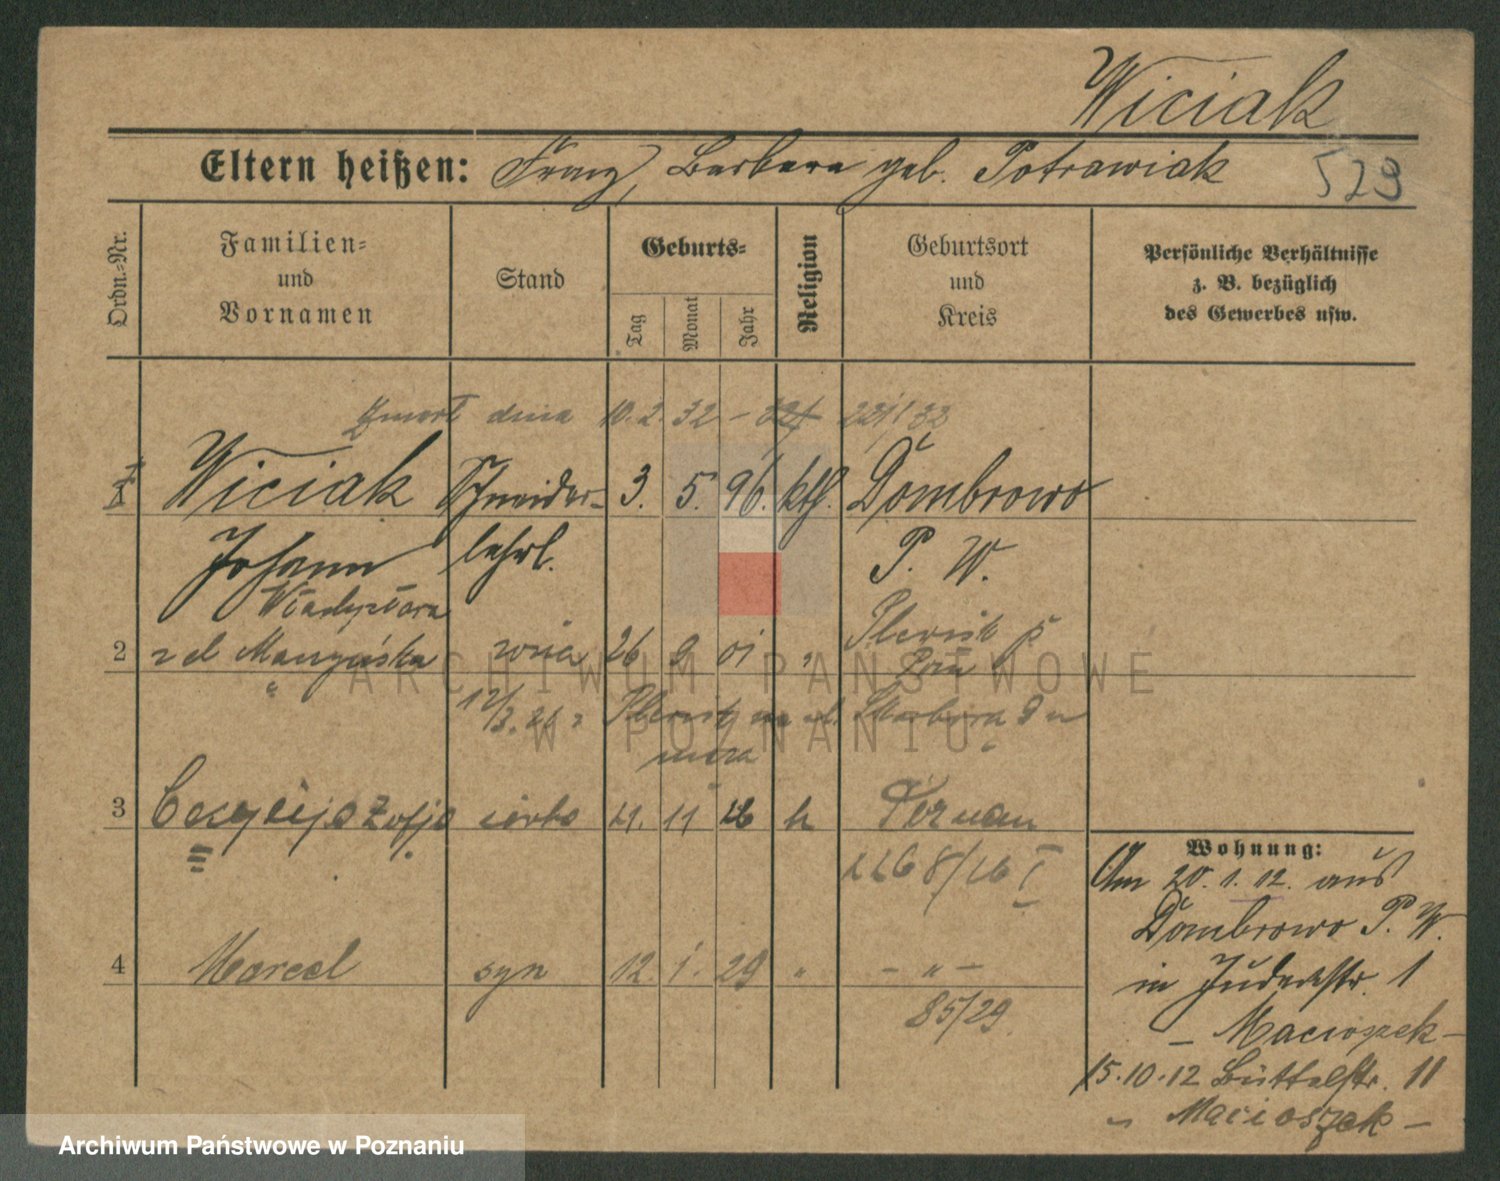 Wiciak
Eltern heißen: Franz, Barbara geb. Potrawiak 529
Ordn.=Nr.
Familien= und Vornamen
Stand
Geburts=
Tag Monat Jahr
Religion
Geburtsort und Kreis
Persönliche Verhältnisse z. B. bezüglich des Gewerbes usw.
Zmarł dnia 10.2.32 -
1 Wiciak Schneider- 3. 5. 96. kth. Dombrowo
Johann lehrl. P. W.
Władysława
2 z d. żona 26 9 01 "
12/3.26
3 Zofja córka 21. 11 26 k Poznań
1168/26 I
4 Marcel syn 12. 1. 29 " - " -
85/29
Wohnung:
Am 20. 1. 12. aus
Dombrowo P. W.
in Judenstr. 1
- Macioszek -
15.10.12 Büttelstr. 11
- Macioszek -
ARCHIWUM PAŃSTWOWE
W POZNANIU
Archiwum Państwowe w Poznaniu